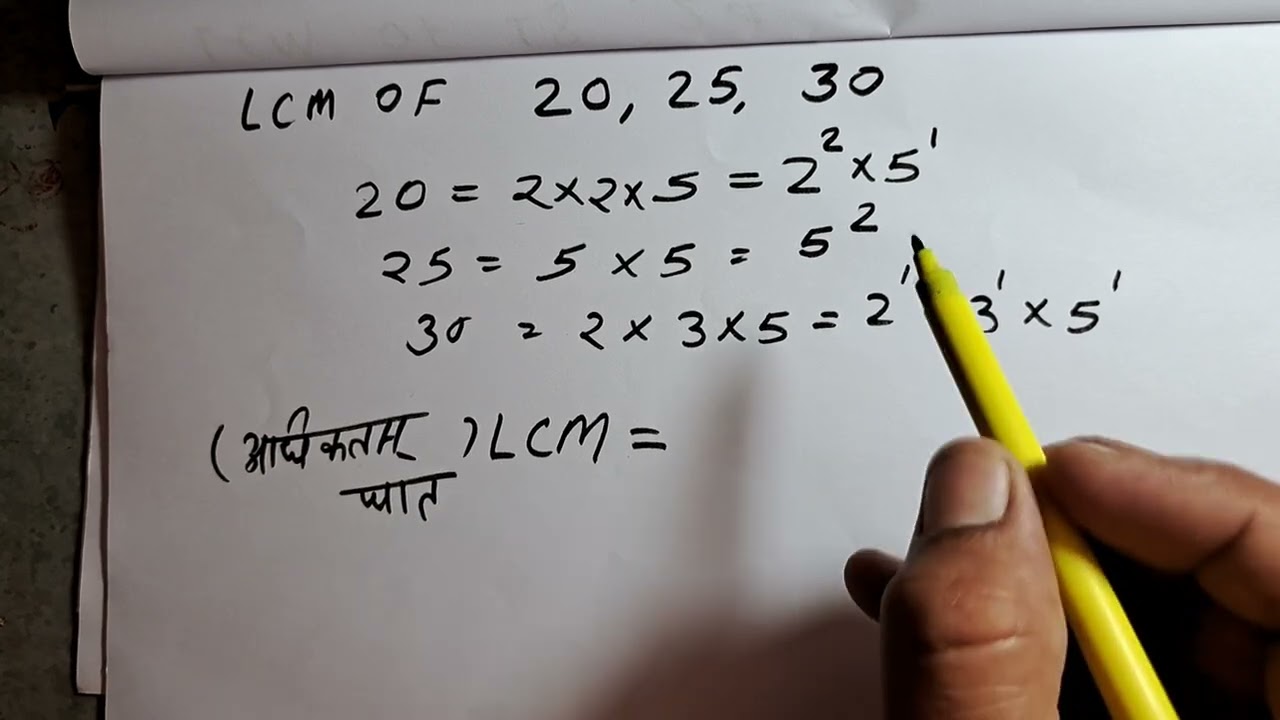 LCM OF 20, 25, 30
20 = 2×2×5 = 2² × 5¹
25 = 5 × 5 = 5²
30 = 2 × 3 × 5 = 2¹ 3¹ × 5¹
(अधिकतम्) LCM =
घात